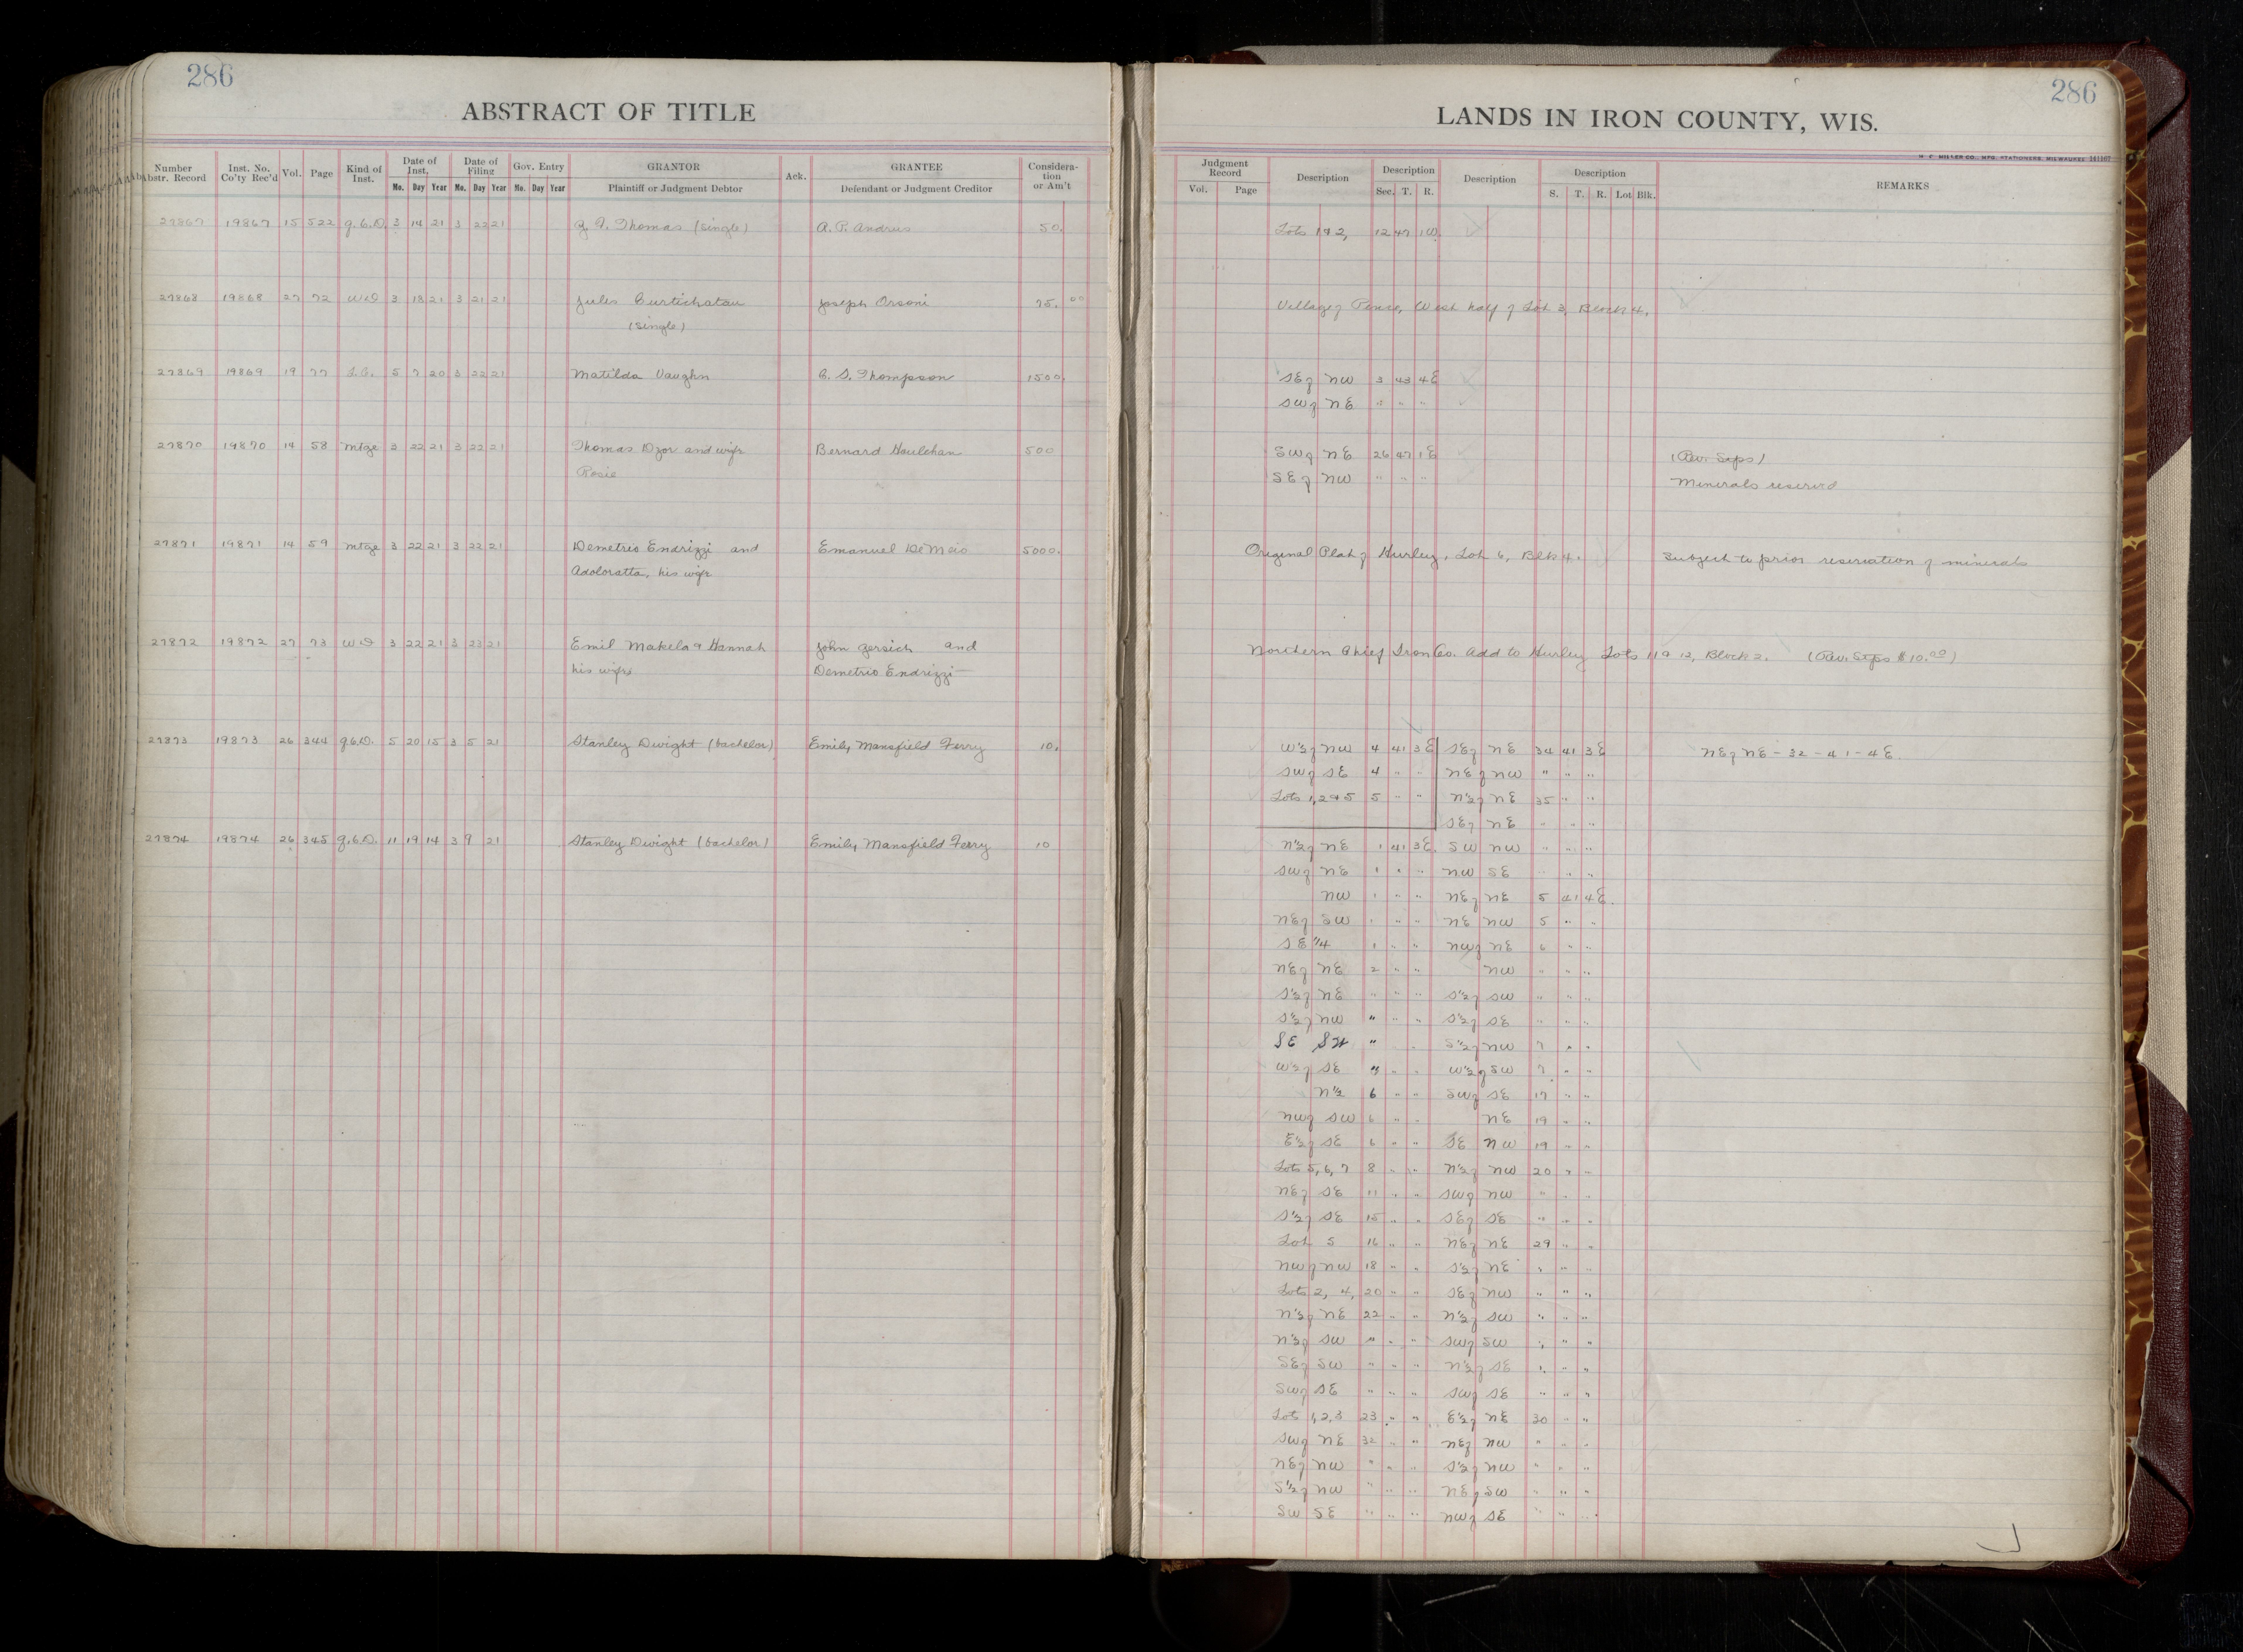 286
ABSTRACT OF TITLE
Number Abstr. Record Inst. No. Co'ty Rec'd Vol. Page Kind of Inst. Date of Inst. Mo. Day Year Date of Filing Mo. Day Year Gov. Entry Mo. Day Year GRANTOR Plaintiff or Judgment Debtor Ack. GRANTEE Defendant or Judgment Creditor Considera-tion or Am't
27867 19867 15 522 Q.C.D. 3 14 21 3 22 21 Thomas (single) A. P. Andrus 50.
27868 19868 27 72 WD 3 18 21 3 21 21 Jules Curtichatau Joseph Orsoni 75.00
(single)
27869 19869 19 77 L.C. 5 7 20 3 22 21 Matilda Vaughn C. S. Thompson 1500.
27870 19870 14 58 Mtge 3 22 21 3 22 21 Thomas Dzor and wife Bernard Houlehan 500
Rosie
27871 19871 14 59 Mtge 3 22 21 3 22 21 Demetrio Endrizzi and Emanuel DeMeio 5000.
Adoloratta, his wife
27872 19872 27 73 WD 3 22 21 3 23 21 Emil Makela & Hannah John Gersich and
his wife Demetrio Endrizzi
27873 19873 26 344 Q.C.D. 5 20 15 3 5 21 Stanley Dwight (bachelor) Emily Mansfield Ferry 10.
27874 19874 26 345 Q.C.D. 11 19 14 3 9 21 Stanley Dwight (bachelor) Emily Mansfield Ferry 10
286
LANDS IN IRON COUNTY, WIS.
H. C. MILLER CO., MFG. STATIONERS, MILWAUKEE 241167
Judgment Record Vol. Page Description Description Sec. T. R. Description Description S. T. R. Lot Blk. REMARKS
Lots 1 & 2, 12 47 1W.
Village of Pence, West half of Lot 3, Block 4.
SE of NW 3 43 4E
SW of NE " " "
SW of NE 26 47 1E (Rev. Stps)
SE of NW " " " Minerals reserved
Original Plat of Hurley, Lot 6, Blk 4. Subject to prior reservation of minerals
Northern Chief Iron Co. Add to Hurley Lots 11 & 12, Block 2. (Rev. Stps $10.00)
W½ of NW 4 41 3E SE of NE 34 41 3E NE of NE - 32 - 41 - 4E.
SW of SE 4 " " NE of NW " " "
Lots 1, 2 & 5 5 " " N½ of NE 35 " "
SE of NE " " "
N½ of NE 1 41 3E. SW NW " " "
SW of NE 1 " " NW SE " " "
NW 1 " " NE of NE 5 41 4E.
NE of SW 1 " " NE NW 5 " "
SE ¼ 1 " " NW of NE 6 " "
NE of NE 2 " " NW " " "
S½ of NE " " " S½ of SW " " "
S½ of NW " " " S½ of SE " " "
SE SW " " S½ of NW 7 " "
W½ of SE " " " W½ of SW 7 " "
N½ 6 " " SW of SE 17 " "
NW of SW 6 " " NE 19 " "
E½ of SE 6 " " SE NW 19 " "
Lots 5, 6, 7 8 " " N½ of NW 20 " "
NE of SE 11 " " SW of NW " " "
S½ of SE 15 " " SE of SE " " "
Lot 5 16 " " NE of NE 29 " "
NW of NW 18 " " S½ of NE " " "
Lots 2, 4, 20 " " SE of NW " " "
N½ of NE 22 " " N½ of SW " " "
N½ of SW " " " SW of SW " " "
SE of SW " " " N½ of SE " " "
SW of SE " " " SW of SE " " "
Lots 1, 2, 3 23 " " E½ of NE 30 " "
SW of NE 32 " " NE of NW " " "
NE of NW " " " S½ of NW " " "
S½ of NW " " " NE of SW " " "
SW SE " " " NW of SE " " "